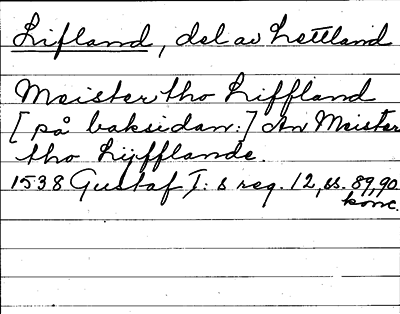 Lifland, del av Lettland
Meister tho Liffland
[på baksidan:] An Meister
tho Lijfflande.
1538 Gustaf I:s reg. 12, ss. 89,90
konc.